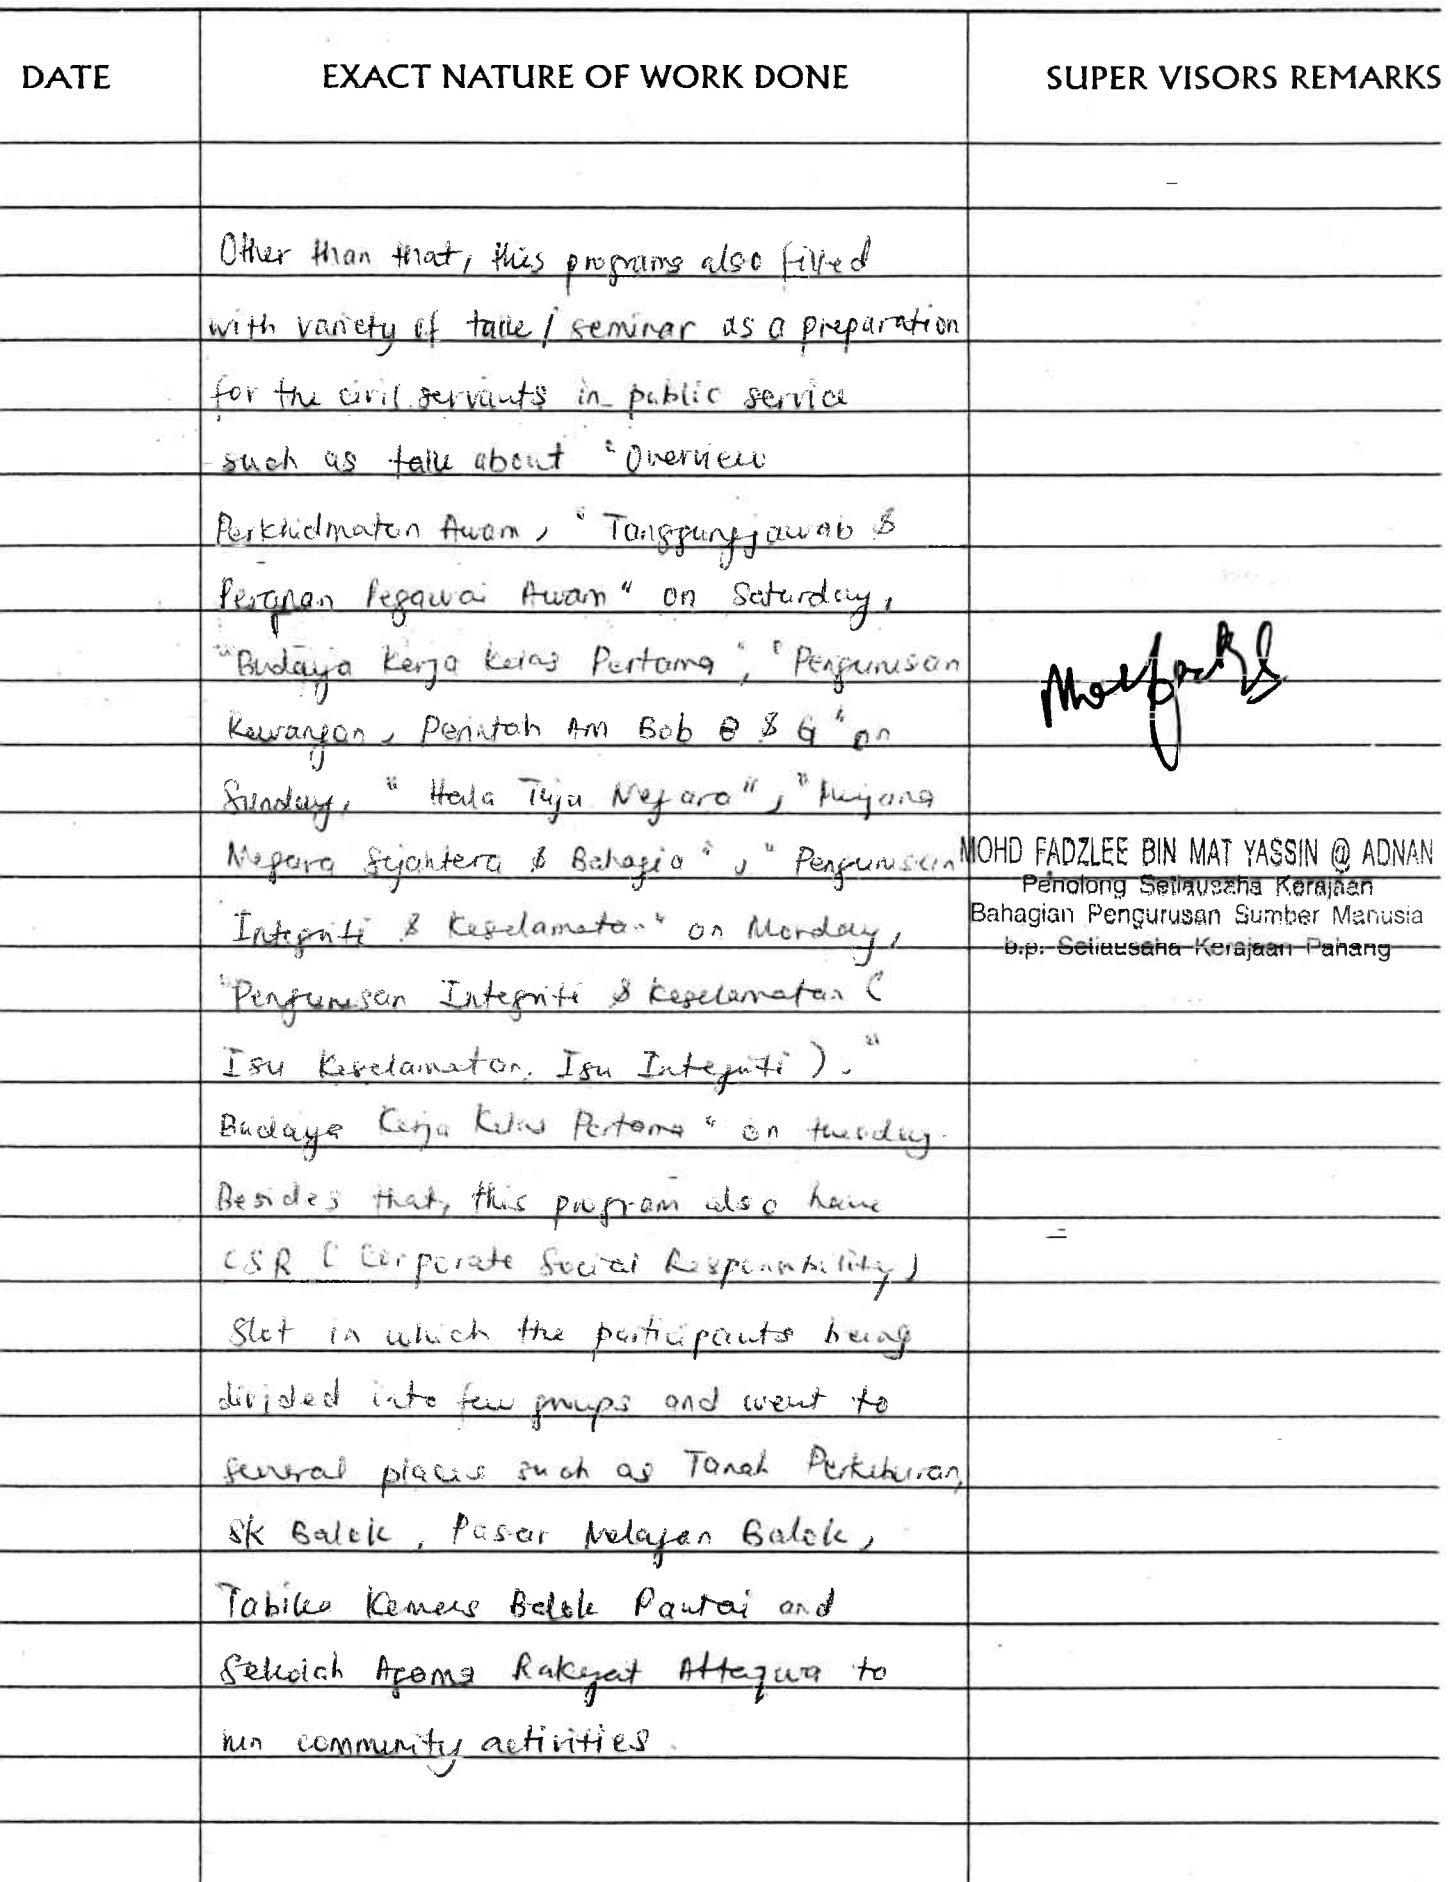 DATE EXACT NATURE OF WORK DONE SUPER VISORS REMARKS
Other than that, this programs also filled
with variety of talk / seminar as a preparation
for the civil servants in public service
such as talk about "Overview
Perkhidmatan Awam, "Tanggungjawab &
Peranan Pegawai Awam" on Saturday,
"Budaya Kerja Kelas Pertama", "Pengurusan
Kewangan, Perintah Am Bab B & G" on
Sunday, "Hala Tuju Negara", "
Negara Sejahtera & Bahagia", "Pengurusan
Integriti & Keselamatan" on Monday,
"Pengurusan Integriti & Keselamatan (
Isu Keselamatan, Isu Integriti). "
Budaya Kerja Kelas Pertama" on tuesday.
Besides that, this program also have
CSR (Corporate Social Responsibility)
Slot in which the participants being
divided into few groups and went to
several places such as Tanah Perkuburan,
SK Balok, Pasar Nelayan Balok,
Tabika Kemas Balok Pantai and
Sekolah Agama Rakyat Attaqwa to
run community activities.
MOHD FADZLEE BIN MAT YASSIN @ ADNAN
Penolong Setiausaha Kerajaan
Bahagian Pengurusan Sumber Manusia
b.p. Setiausaha Kerajaan Pahang